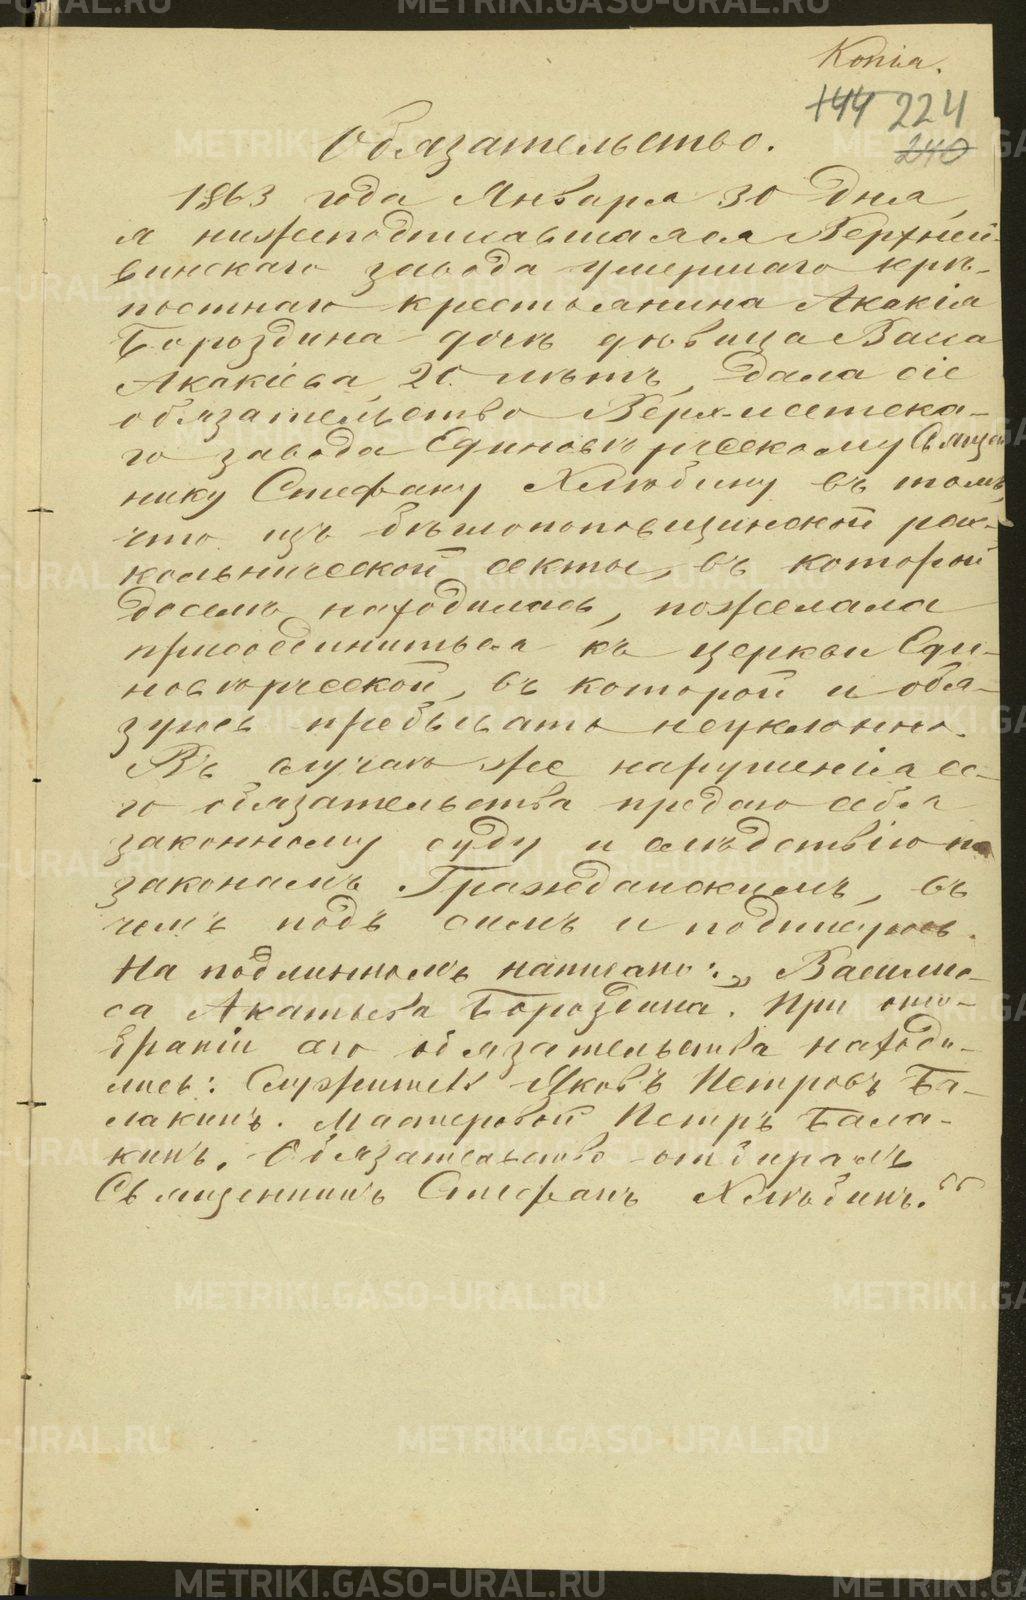 Копія.
144 224
240
Обязательство.
1863 года Января 30 дня,
я нижеподписавшаяся Верхней-
винскаго завода умершаго крѣ-
постнаго крестьянина Акакія
Бороздина дочь дѣвица Васса
Акакіева, 20 лѣтъ, дала сіе
обязательство Верх-исетска-
го завода Единовѣрческому Свящ
нику Стефану Хлѣбину въ томъ,
что изъ бѣглопоповщинской рас-
кольнической секты, въ которой
доселѣ находилась, пожелала
присоединиться къ церкви Еди-
новѣрческой, въ которой и обя-
зуюсь пребывать неуклонно.
Въ случаѣ же нарушенія се-
го обязательства предаю себя
законному суду и слѣдствію по
законамъ Гражданскимъ, въ
чемъ подъ симъ и подписуюсь.
На подлинномъ написано: „Васили-
са Акатьева Бороздина. При ото-
браніи сего обязательства находи-
лись: Служитель Яковъ Петровъ Ба-
лакинъ. Мастеровой Петръ Бала-
кинъ. Обязательство отбиралъ
Священникъ Стефанъ Хлѣбинъ."
METRIKI.GASO-URAL.RU